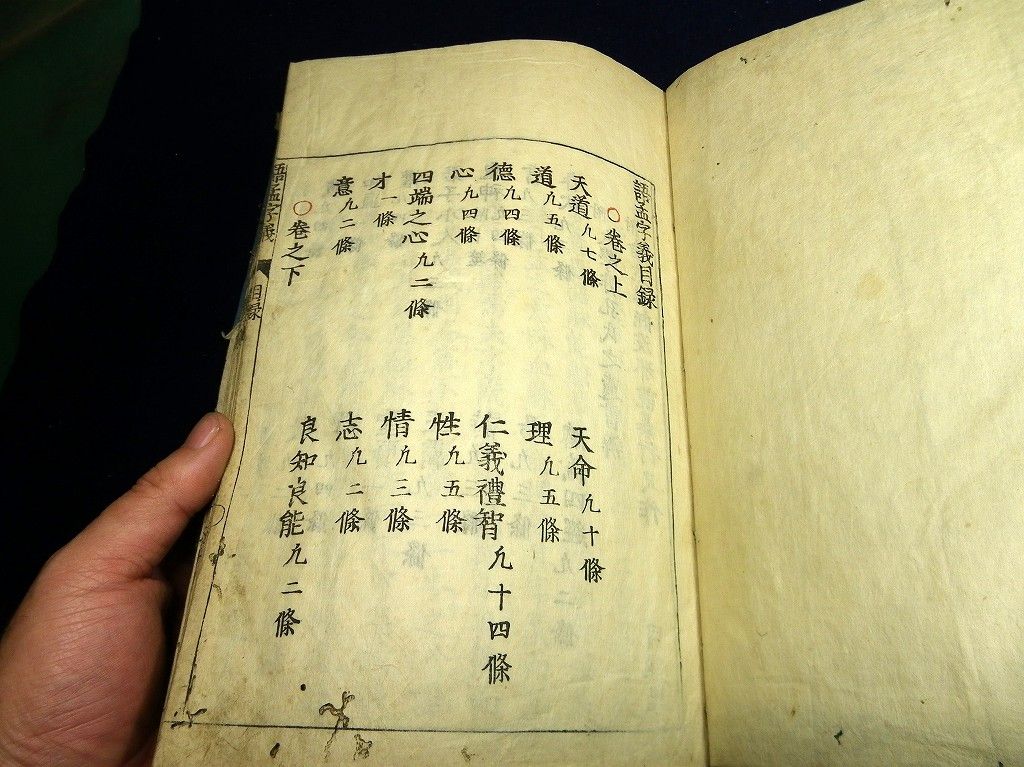 語孟字義目録
○卷之上
天道凢七條 天命凢十條
道凢五條 理凢五條
德凢四條 仁義禮智凢十四條
心凢四條 性凢五條
四端之心凢二條 情凢三條
才一條 志凢二條
意凢二條 良知良能凢二條
○卷之下
語孟字義 目録